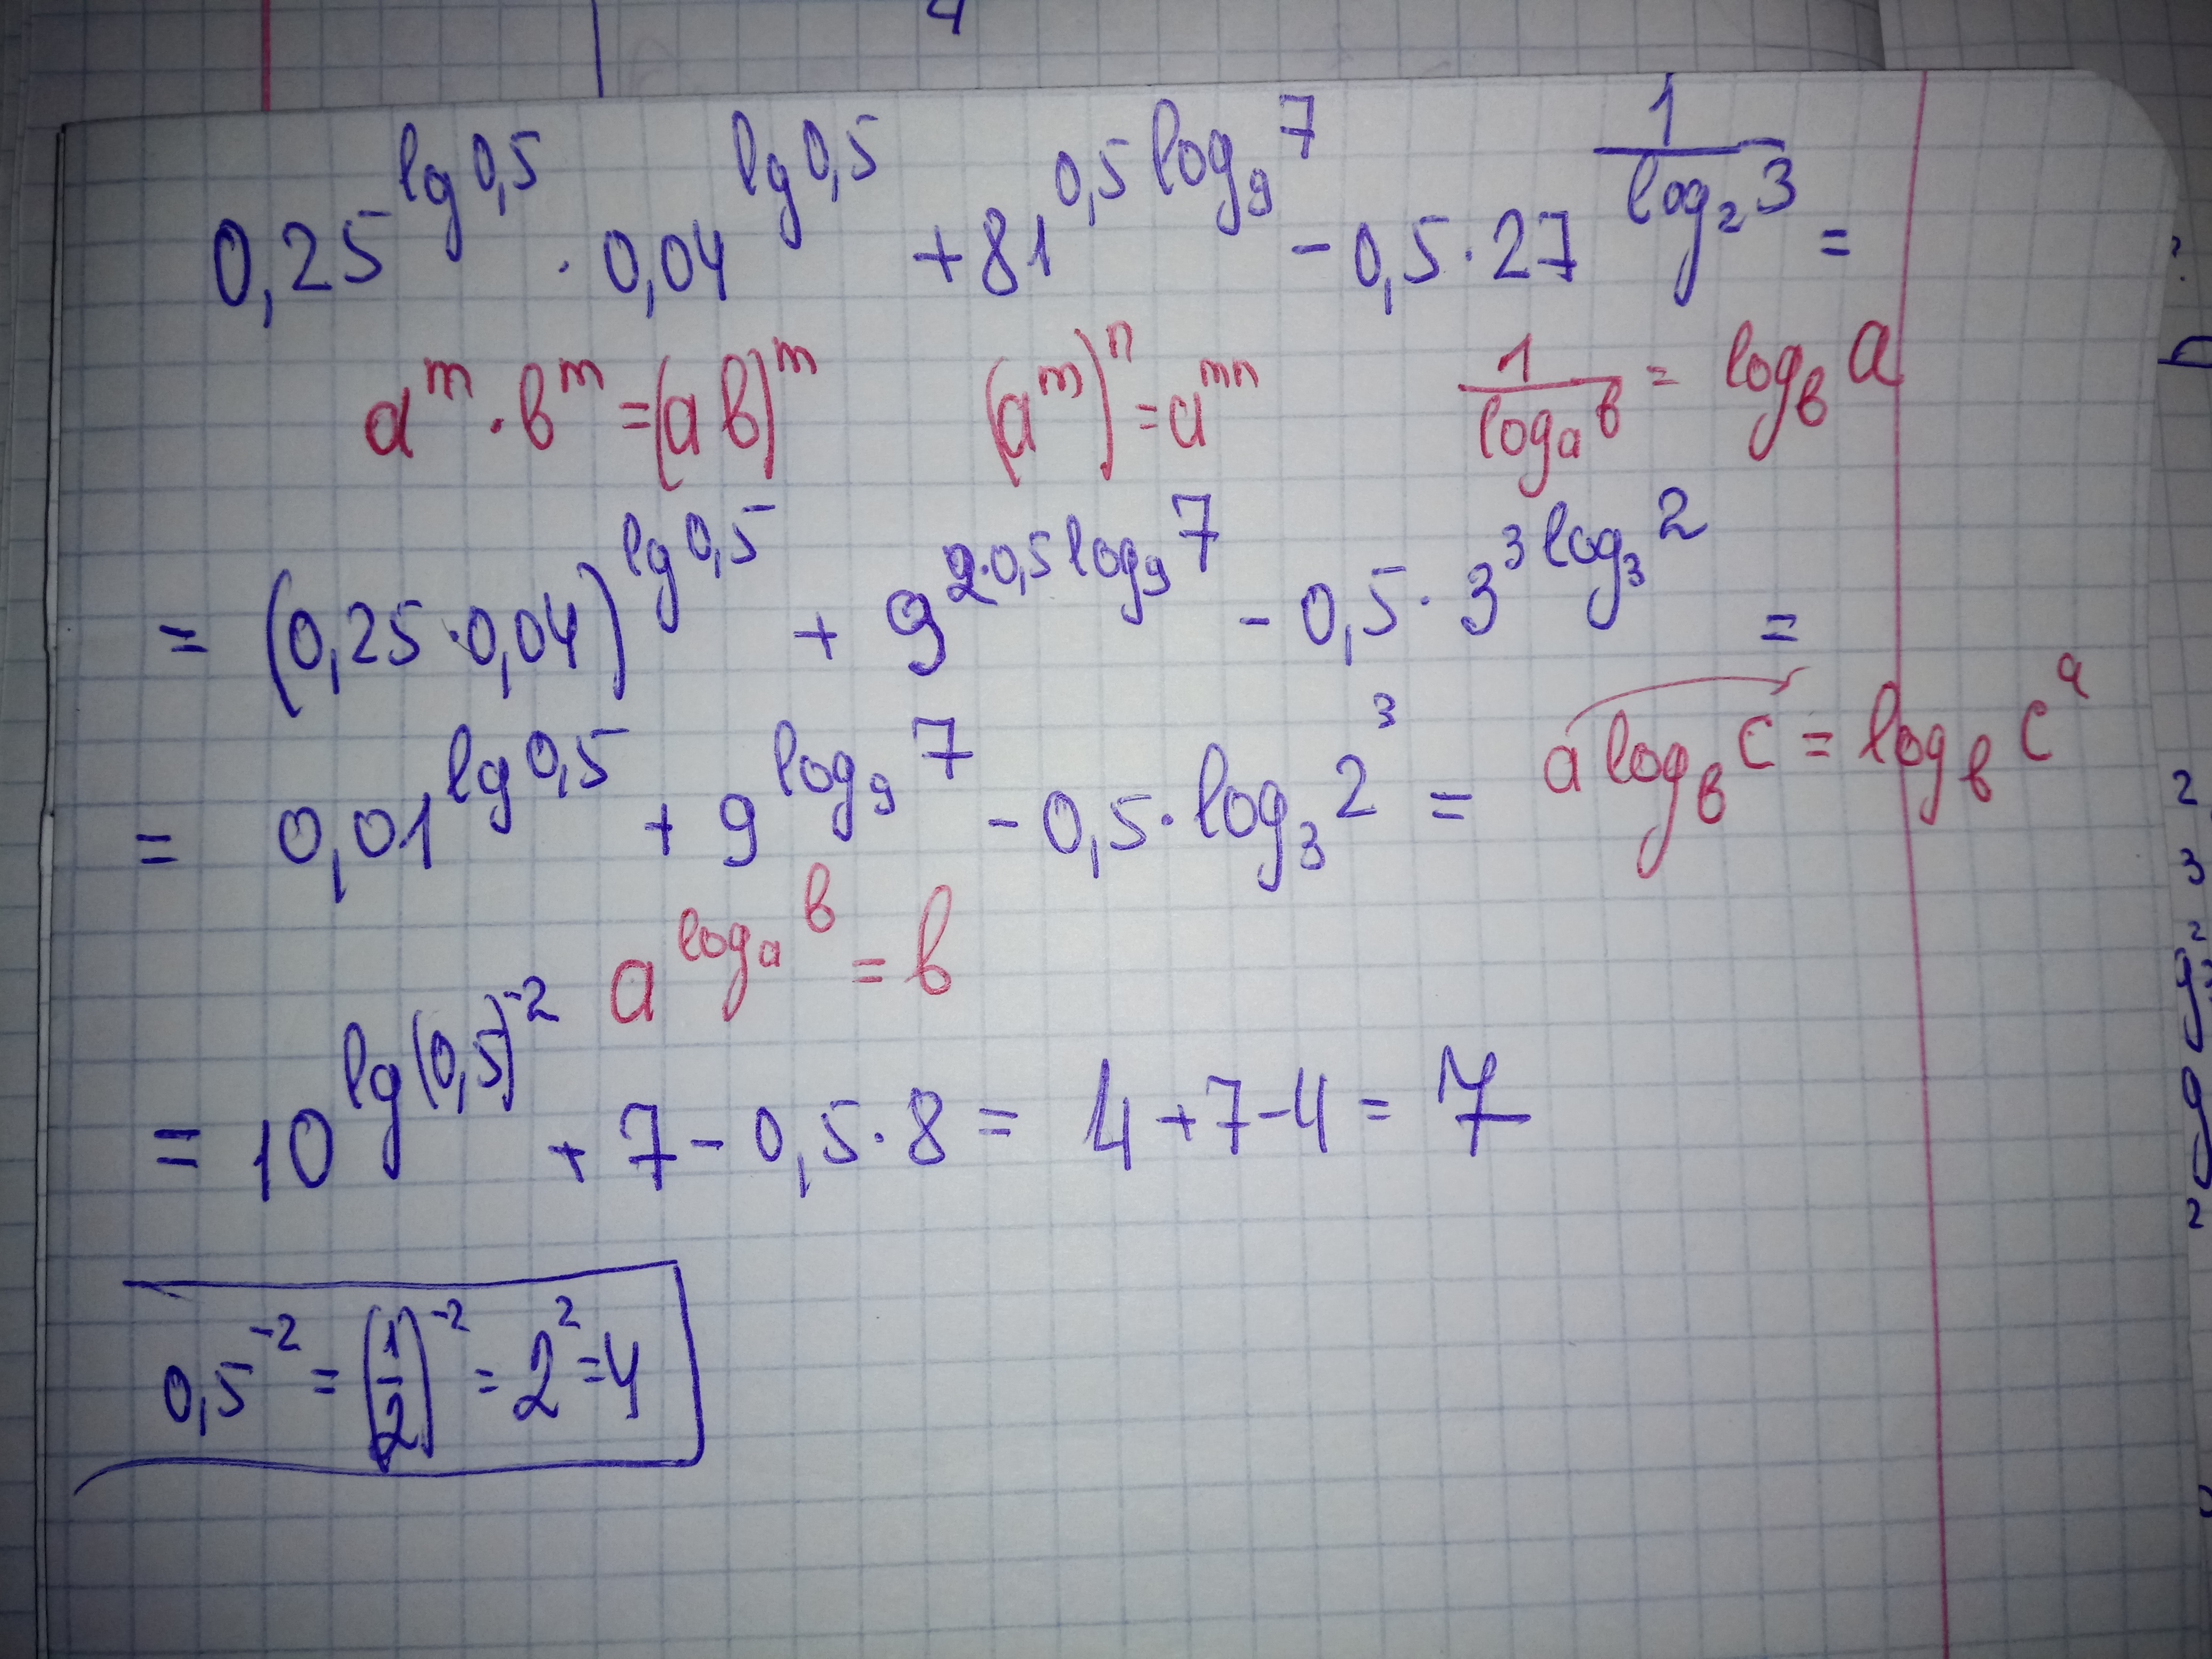 0,25^{lg 0,5} · 0,04^{lg 0,5} + 81^{0,5 log_9 7} - 0,5 · 27^{\frac{1}{log_2 3}} =
a^m · b^m = (ab)^m (a^m)^n = a^{mn} \frac{1}{log_a b} = log_b a
= (0,25 · 0,04)^{lg 0,5} + 9^{2·0,5 log_9 7} - 0,5 · 3^{3 log_3 2} =
= 0,01^{lg 0,5} + 9^{log_9 7} - 0,5 · log_3 2^3 = a log_b c = log_b c^a
a^{log_a b} = b
= 10^{lg (0,5)^{-2}} + 7 - 0,5 · 8 = 4 + 7 - 4 = 7
0,5^{-2} = (\frac{1}{2})^{-2} = 2^2 = 4